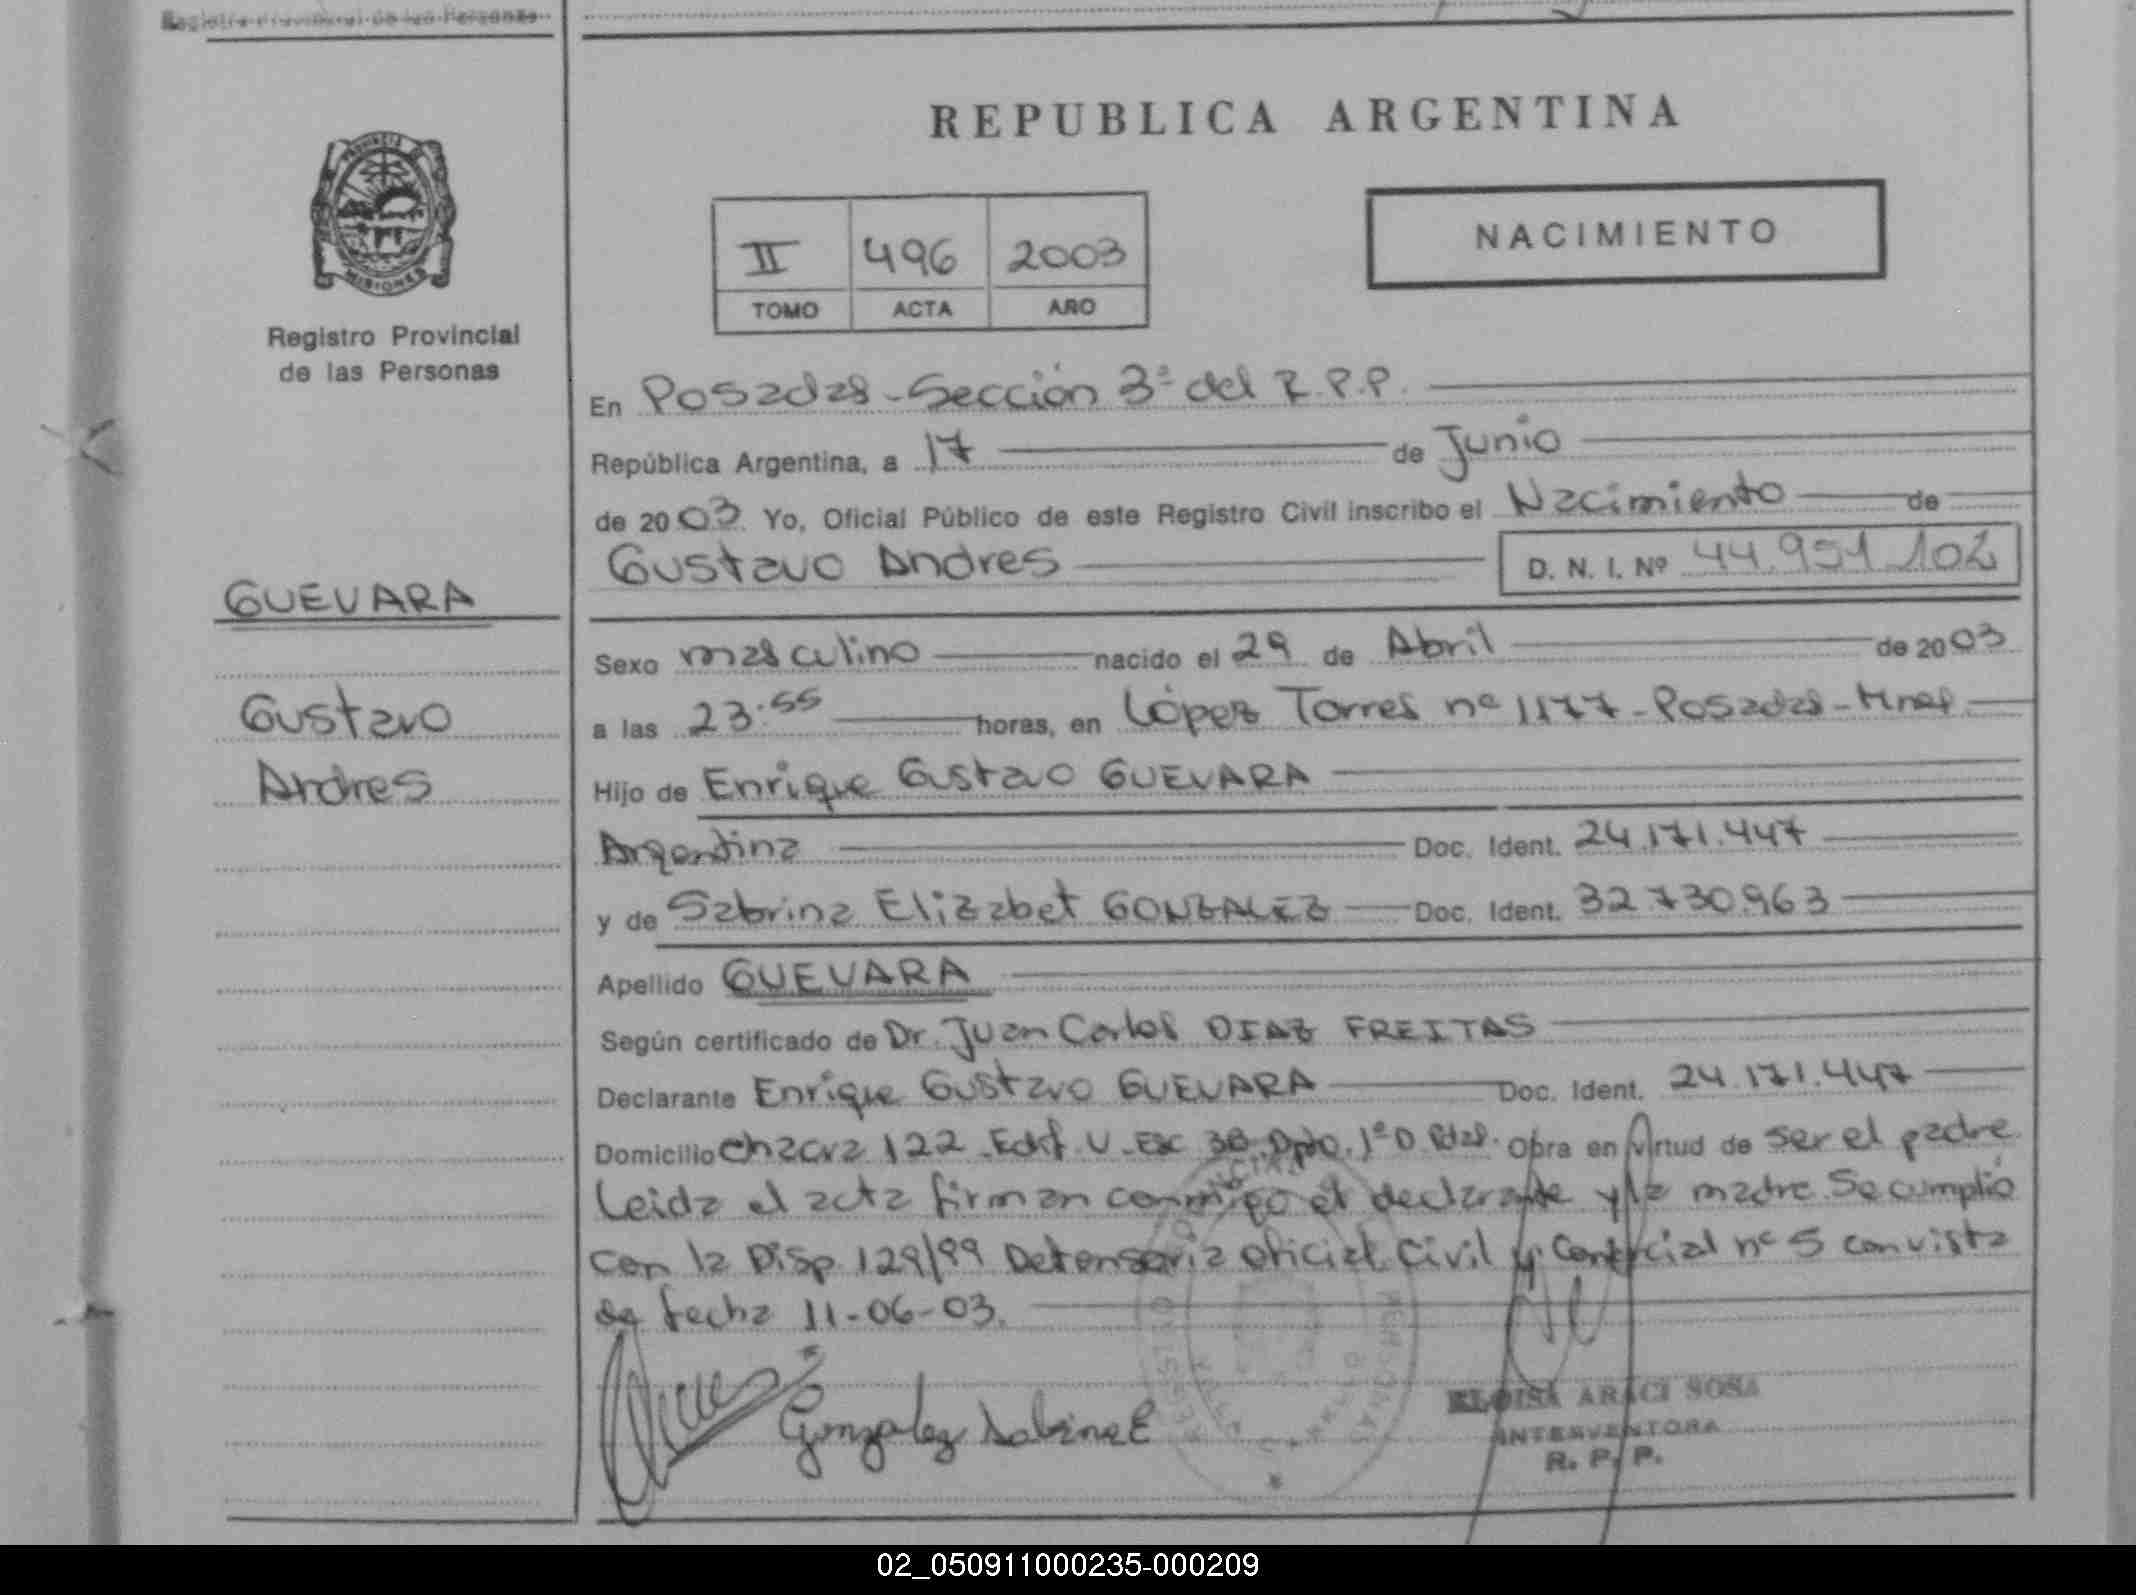 Registro Provincial de las Personas
PROVINCIA DE
MISIONES
Registro Provincial
de las Personas
GUEVARA
Gustavo
Andres
REPUBLICA ARGENTINA
II 496 2003
TOMO ACTA AÑO
NACIMIENTO
En Posadas - Sección 3ª del R.P.P.
República Argentina, a 17 de Junio
de 2003 Yo, Oficial Público de este Registro Civil inscribo el Nacimiento de
Gustavo Andres D. N. I. Nº 44.951.102
Sexo masculino nacido el 29 de Abril de 2003
a las 23:55 horas, en López Torres nº 1177 - Posadas - Mnes
Hijo de Enrique Gustavo GUEVARA
Argentina Doc. Ident. 24.171.447
y de Sabrina Elizabet GONZALEZ Doc. Ident. 32.730.963
Apellido GUEVARA
Según certificado de Dr. Juan Carlos DIAZ FREITAS
Declarante Enrique Gustavo GUEVARA Doc. Ident. 24.171.447
Domicilio Chacra 122 - Edif. V - Esc 3B - Dpto. 1º D. Pdas. Obra en virtud de ser el padre
Leida el acta firman conmigo el declarante y la madre. Se cumplió
con la Disp 129/99 Defensoria Oficial Civil y Comercial nº 5 con vista
de fecha 11-06-03.
Gonzalez Sabrina E
ELOISA ARACI SOSA
INTERVENTORA
R. P. P.
02_050911000235-000209